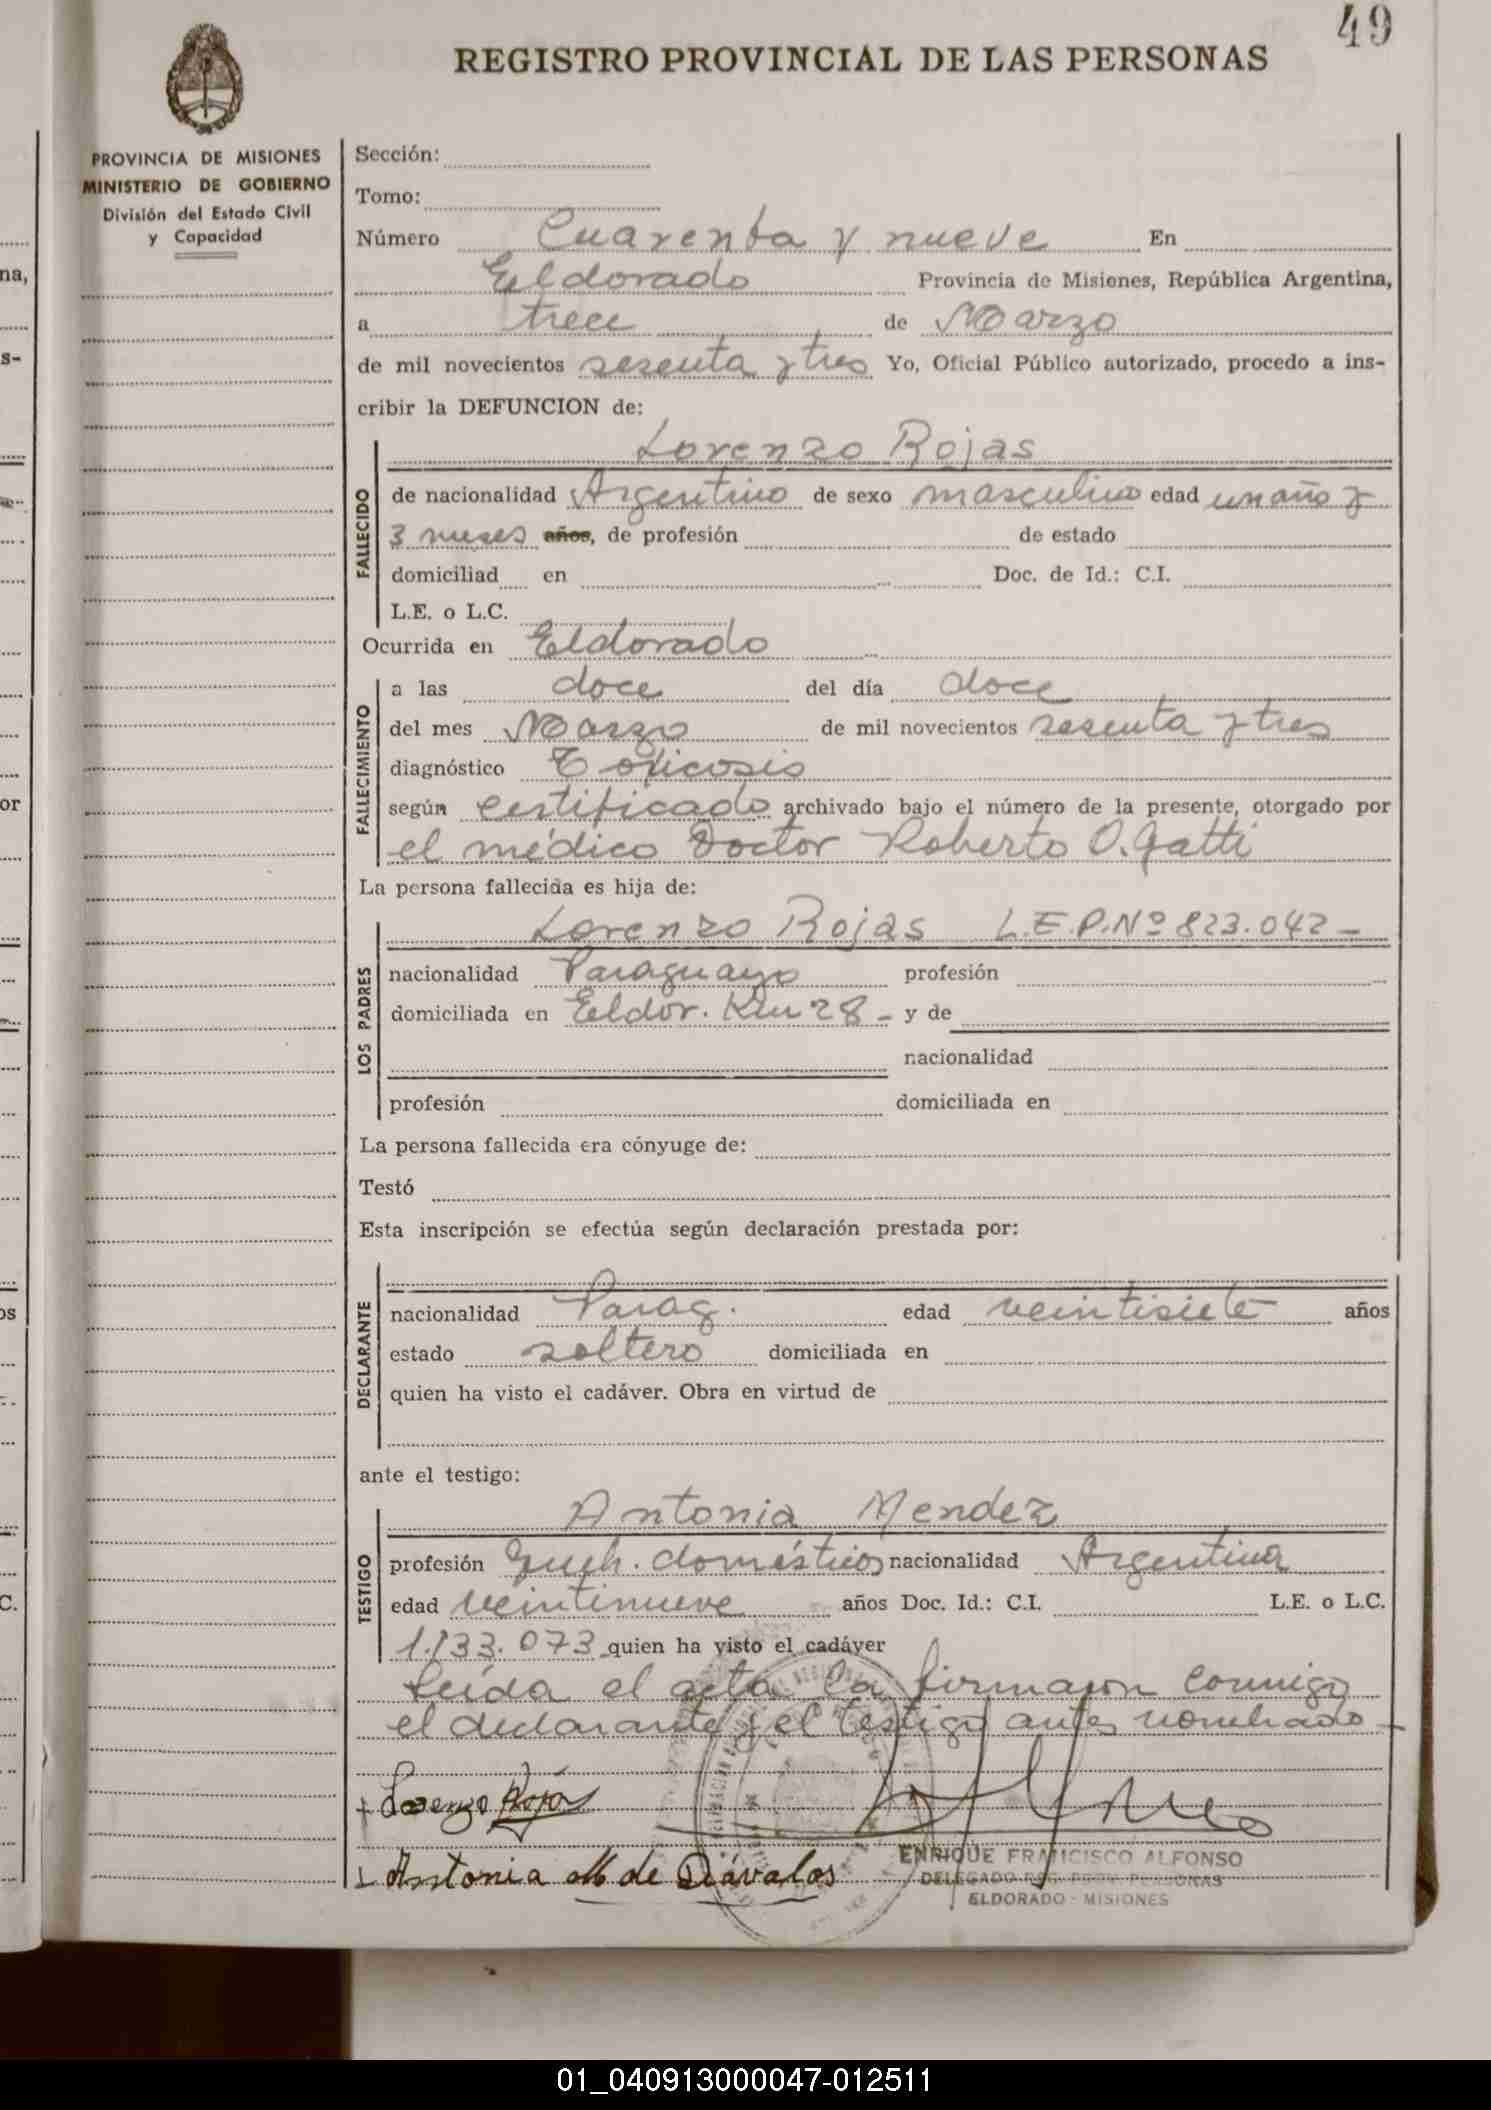 49
REGISTRO PROVINCIAL DE LAS PERSONAS
PROVINCIA DE MISIONES
MINISTERIO DE GOBIERNO
División del Estado Civil
y Capacidad
Sección:
Tomo:
Número Cuarenta y nueve En
Eldorado Provincia de Misiones, República Argentina,
a trece de Marzo
de mil novecientos sesenta y tres Yo, Oficial Público autorizado, procedo a ins-
cribir la DEFUNCION de:
Lorenzo Rojas
FALLECIDO
de nacionalidad Argentino de sexo masculino edad un año y
3 meses años, de profesión de estado
domiciliad en Doc. de Id.: C.I.
L.E. o L.C.
Ocurrida en Eldorado
FALLECIMIENTO
a las doce del día doce
del mes Marzo de mil novecientos sesenta y tres
diagnóstico Toxicosis
según certificado archivado bajo el número de la presente, otorgado por
el médico Doctor Roberto O. Gatti
La persona fallecida es hija de:
LOS PADRES
Lorenzo Rojas L.E.P.Nº 823.042 -
nacionalidad Paraguayo profesión
domiciliada en Eldor. Km 28 - y de
nacionalidad
profesión domiciliada en
La persona fallecida era cónyuge de:
Testó
Esta inscripción se efectúa según declaración prestada por:
DECLARANTE
nacionalidad Parag. edad veintisiete años
estado soltero domiciliada en
quien ha visto el cadáver. Obra en virtud de
ante el testigo:
TESTIGO
Antonia Mendez
profesión domésticos nacionalidad Argentina
edad veintinueve años Doc. Id.: C.I. L.E. o L.C.
1.133.073 quien ha visto el cadáver
Leída el acta la firmaron conmigo
el declarante y el testigo antes nombrado -
Lorenzo Rojas
Antonia M de Dávalos
ENRIQUE FRANCISCO ALFONSO
DELEGADO REG. PROV. PERSONAS
ELDORADO - MISIONES
01_040913000047-012511